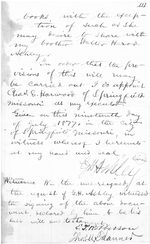 books with the excep-
tion of such as she
may desire to share with
my brother
Ashley.
In order that the pro-
visions of this will may
be carried out I do appoint
Chas. E. Harwood of Springfield
Missouri as my executor
Done on this nineteenth day
of July 1877, in the City
of Springfield Missouri, in
witness whereof I hereunto
set my hand and seal
Witnesses We the undersigned, at
the request of S.H. Ashley, witnessed
the signing of the above docu-
ment, declared to him to be his
last will and